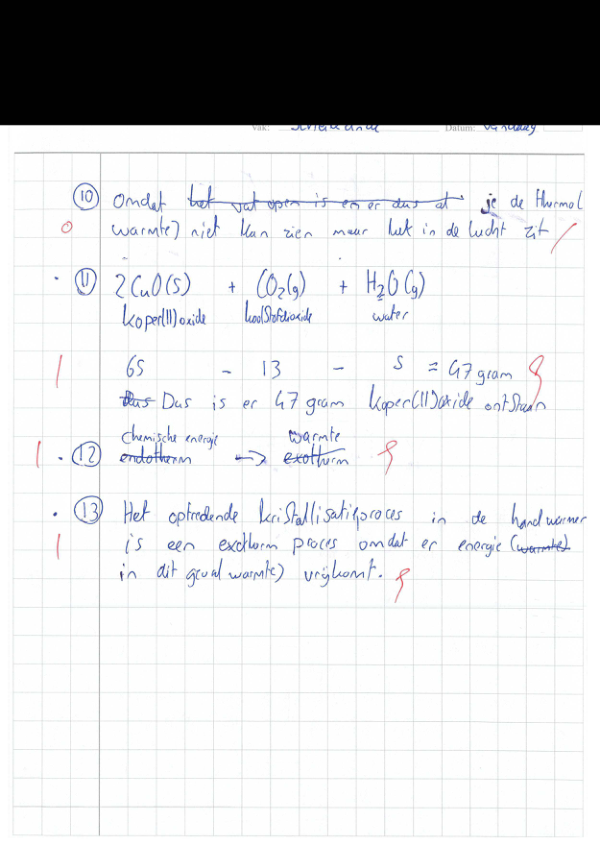 vak: scheikunde Datum: vandaag
10 Omdat het vat open is en er dus at je de thurmol
0 warmte) niet kan zien maar het in de lucht zit
11 2CuO(s) + CO₂(g) + H₂O(g)
koper(II)oxide koolstofdioxide water
1 65 - 13 - 5 = 47 gram
dus Dus is er 47 gram koper(II)oxide ontstaan
chemische energie warmte
1 12 endotherm -> exotherm
13 Het optredende kristallisatieproces in de handwarmer
1 is een exotherm proces omdat er energie (warmte)
in dit geval warmte) vrijkomt.